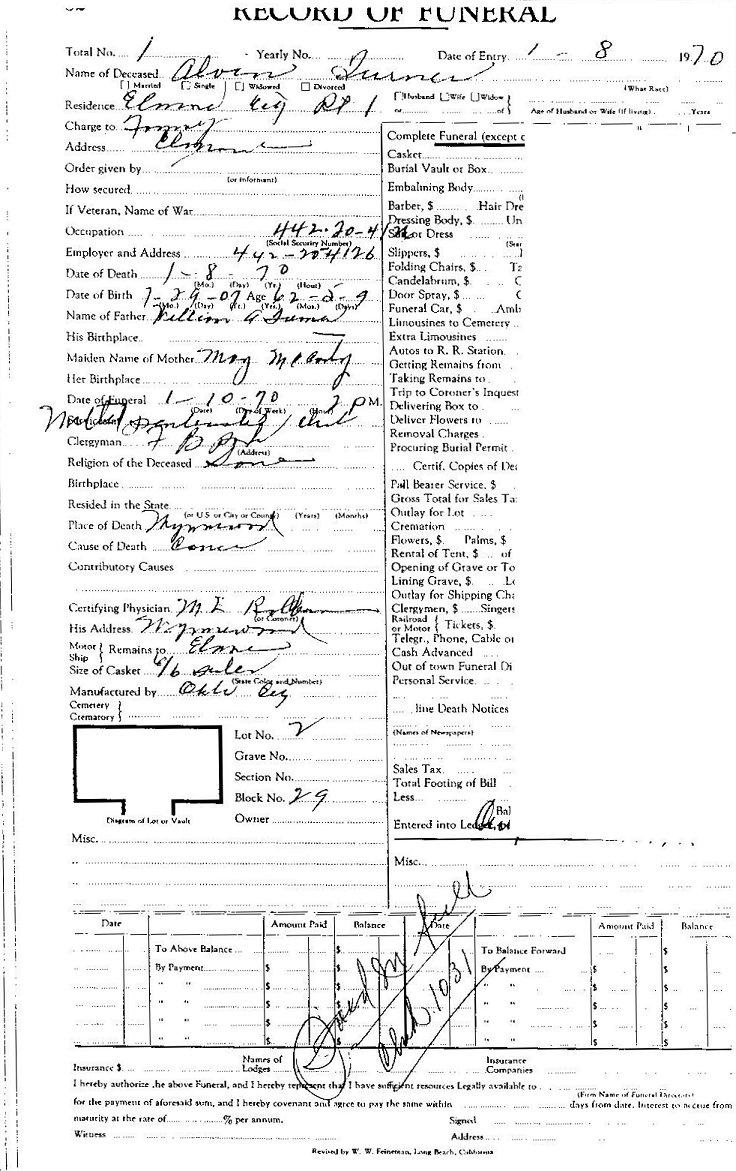 RECORD OF FUNERAL
Total No. 1 Yearly No. Date of Entry 1 - 8 1970
Name of Deceased Alvin Turner
Married Single Widowed Divorced (What Race)
Residence Elmore City Rt 1 Husband Wife Widow
or of Age of Husband or Wife (if living) Years
Charge to Family
Address Elmore
Order given by
(or informant)
How secured
If Veteran, Name of War
Occupation 442-20-4126
(Social Security Number)
Employer and Address 442-20-4126
Date of Death 1-8-70
(Mo.) (Day) (Yr.) (Hour)
Date of Birth 7-29-07 Age 62
(Mo.) (Day) (Yr.) (Yrs.) (Mos.) (Days)
Name of Father William A Turner
His Birthplace
Maiden Name of Mother May
Her Birthplace
Date of Funeral 1-10-70 2 P M.
(Date) (Day of Week) (Hour)
Clergyman
(Address)
Religion of the Deceased
Birthplace
Resided in the State
(or U.S or City or County) (Years) (Months)
Place of Death Wynnewood
Cause of Death Cancer
Contributory Causes
Certifying Physician M E
(or Coroner)
His Address Wynnewood
Motor Ship Remains to Elmore
Size of Casket 6/6
(State Color and Number)
Manufactured by Okla City
Cemetery
Crematory
Lot No. 2
Grave No.
Section No.
Block No. 29
Owner
Diagram of Lot or Vault
Misc.
Complete Funeral (except c
Casket
Burial Vault or Box
Embalming Body
Barber, $ Hair Dre
Dressing Body, $ Un
Suit or Dress
Slippers, $
Folding Chairs, $ Ta
Candelabrum, $ C
Door Spray, $ C
Funeral Car, $ Amb
Limousines to Cemetery
Extra Limousines
Autos to R. R. Station
Getting Remains from
Taking Remains to
Trip to Coroner's Inquest
Delivering Box to
Deliver Flowers to
Removal Charges
Procuring Burial Permit
Certif. Copies of De
Pall Bearer Service, $
Gross Total for Sales Ta
Outlay for Lot
Cremation
Flowers, $ Palms, $
Rental of Tent, $ of
Opening of Grave or To
Lining Grave, $ Lo
Outlay for Shipping Cha
Clergymen, $ Singers
Railroad or Motor Tickets, $
Telegr., Phone, Cable or
Cash Advanced
Out of town Funeral Di
Personal Service
line Death Notices
(Names of Newspapers)
Sales Tax
Total Footing of Bill
Less
Bal
Entered into Ledger, of
Misc.
Date Amount Paid Balance Date Amount Paid Balance
To Above Balance $ To Balance Forward $
By Payment $ $ By Payment $ $
" " $ $ " " $ $
" " $ $ " " $ $
" " $ $ " " $ $
" " $ $ " " $ $
Paid In full
Check 1031
Insurance $ Names of Lodges Insurance Companies
I hereby authorize the above Funeral, and I hereby represent that I have sufficient resources Legally available to
(Firm Name of Funeral Directors)
for the payment of aforesaid sum, and I hereby covenant and agree to pay the same within days from date. Interest to accrue from
maturity at the rate of % per annum. Signed
Witness Address
Revised by W. W. Feineman, Long Beach, California